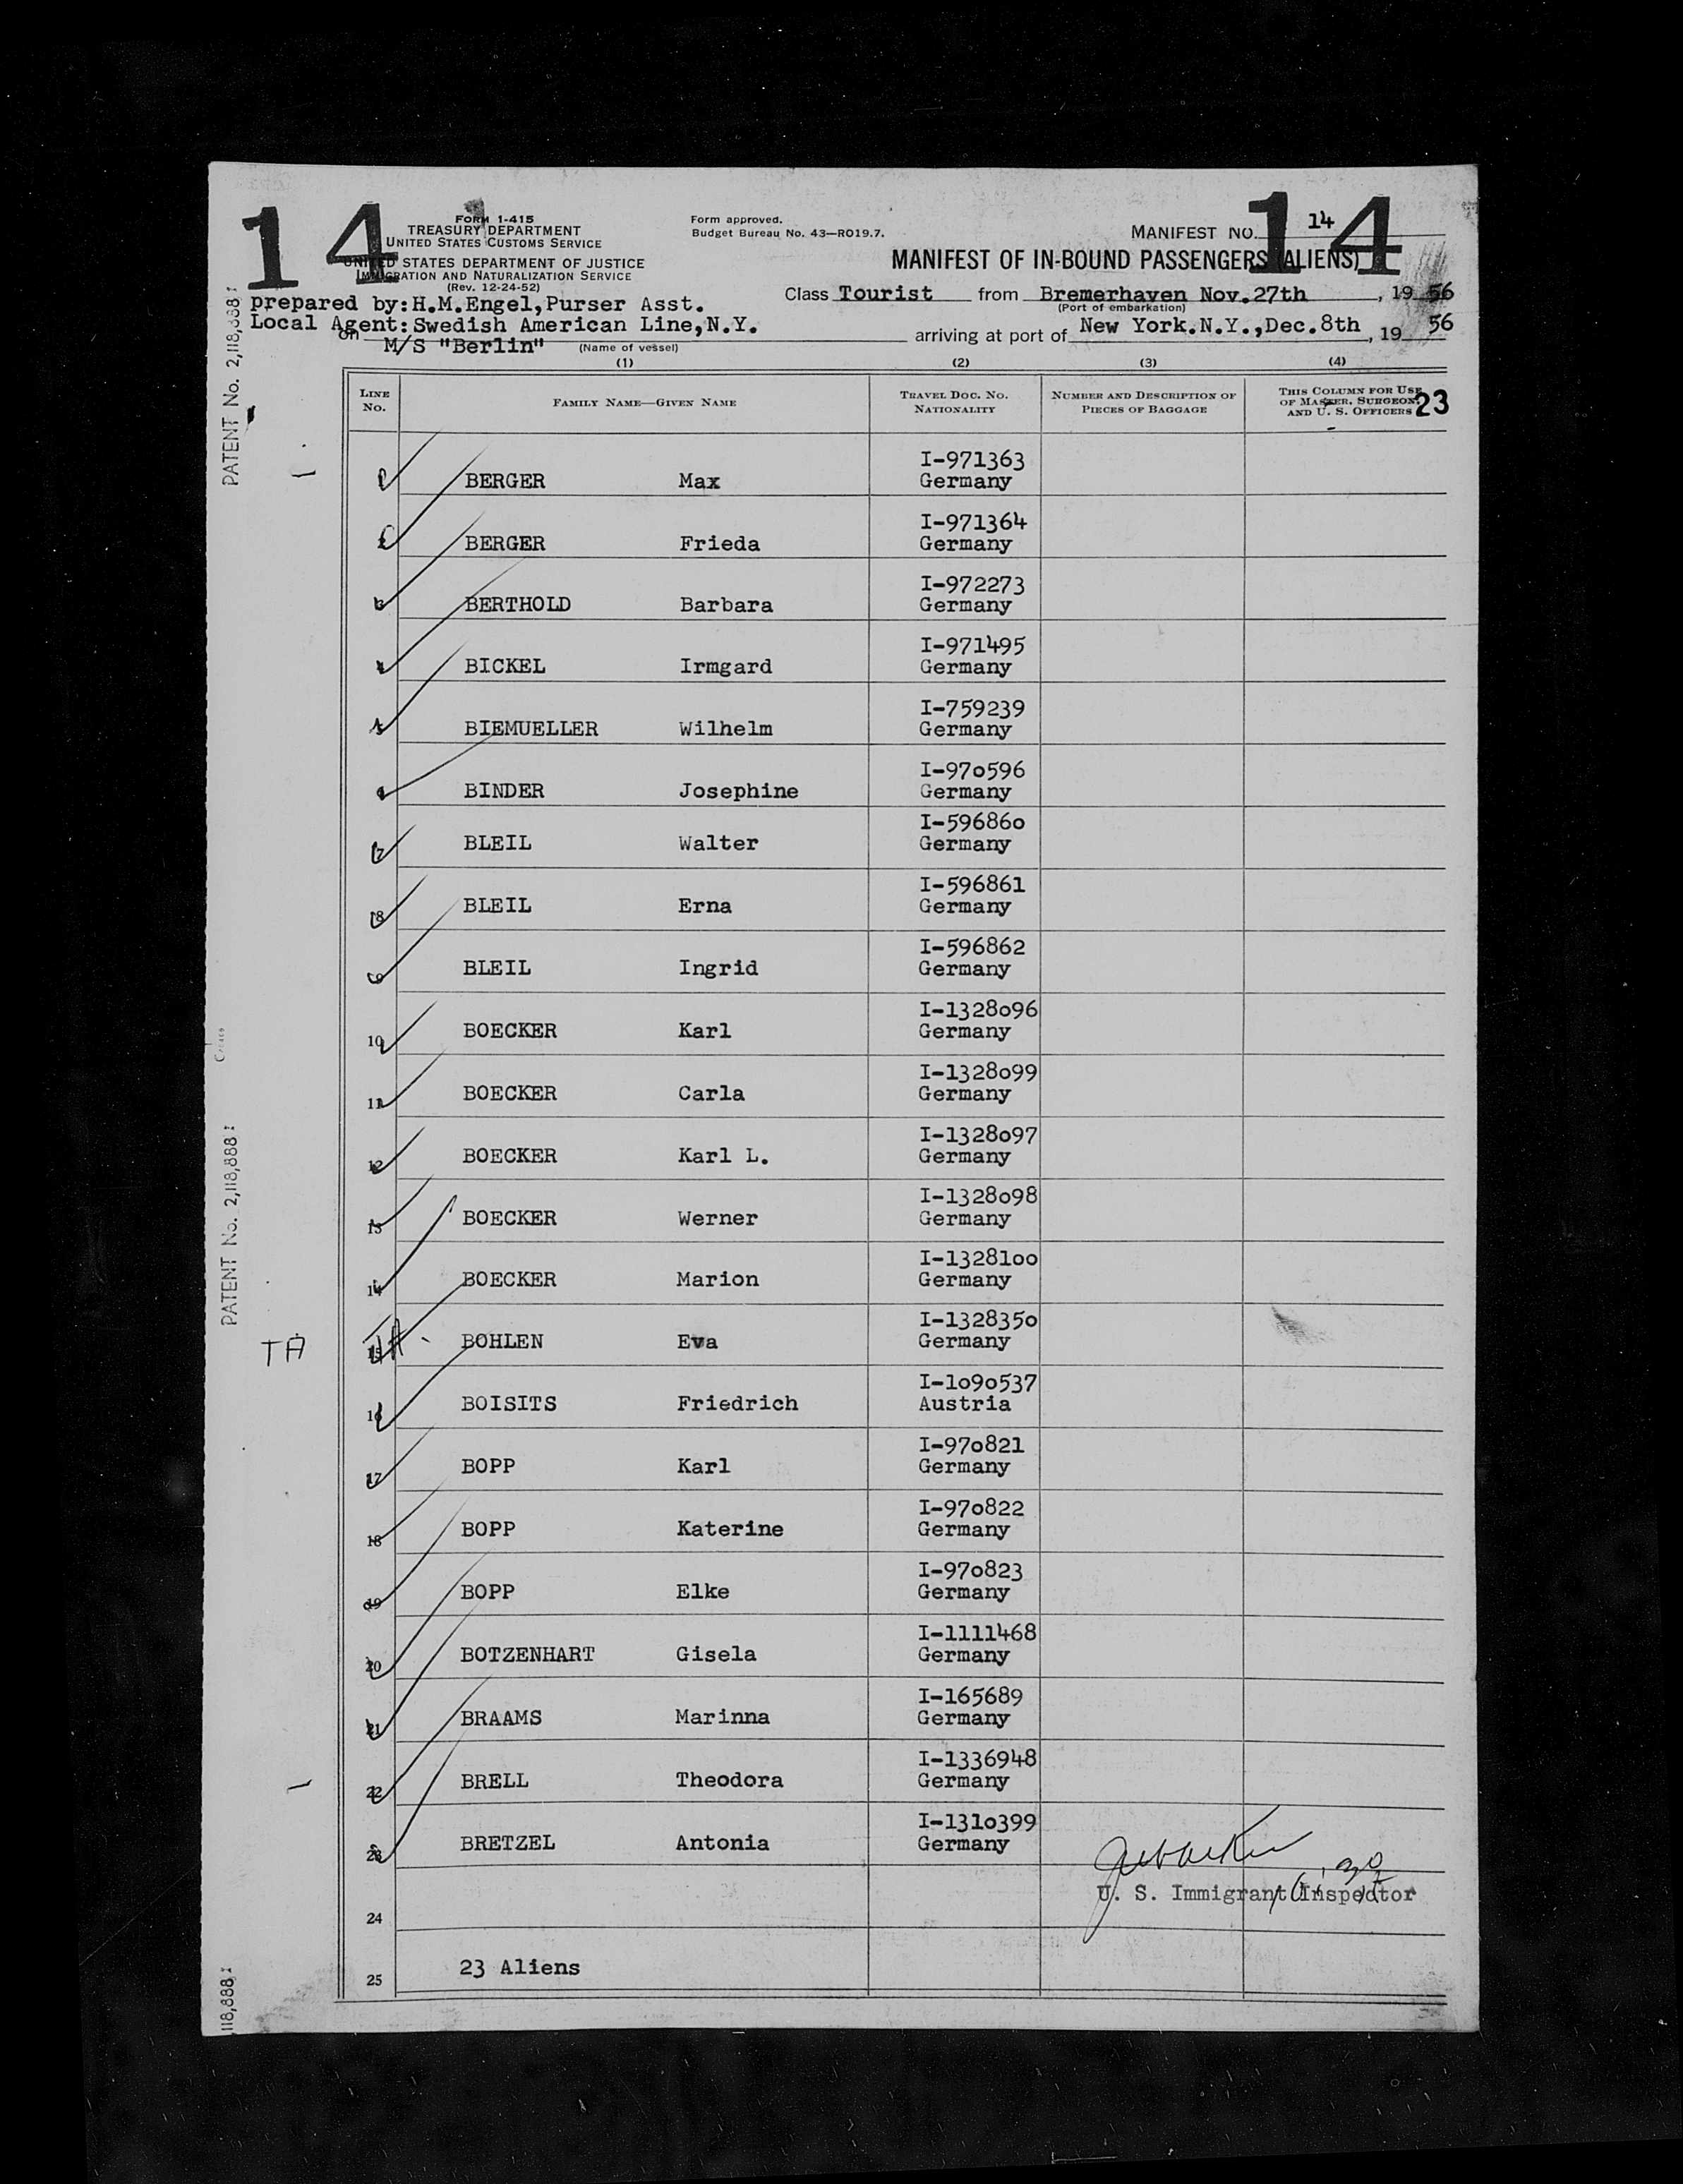 14
14
FORM I-415
TREASURY DEPARTMENT
UNITED STATES CUSTOMS SERVICE
UNITED STATES DEPARTMENT OF JUSTICE
IMMIGRATION AND NATURALIZATION SERVICE
(Rev. 12-24-52)
Form approved.
Budget Bureau No. 43—RO19.7.
MANIFEST NO. 14
MANIFEST OF IN-BOUND PASSENGERS (ALIENS)
prepared by: H.M.Engel, Purser Asst.
Class Tourist from Bremerhaven Nov. 27th, 19 56
(Port of embarkation)
Local Agent: Swedish American Line, N.Y.
on M/S "Berlin"
(Name of vessel)
arriving at port of New York. N.Y., Dec. 8th, 19 56
(1) (2) (3) (4)
LINE No. FAMILY NAME—GIVEN NAME TRAVEL DOC. NO. NATIONALITY NUMBER AND DESCRIPTION OF PIECES OF BAGGAGE THIS COLUMN FOR USE OF MASTER, SURGEON, AND U. S. OFFICERS 23
I-971363
1 BERGER Max Germany
I-971364
2 BERGER Frieda Germany
I-972273
3 BERTHOLD Barbara Germany
I-971495
4 BICKEL Irmgard Germany
I-759239
5 BIEMUELLER Wilhelm Germany
I-970596
6 BINDER Josephine Germany
I-596860
7 BLEIL Walter Germany
I-596861
8 BLEIL Erna Germany
I-596862
9 BLEIL Ingrid Germany
I-1328096
10 BOECKER Karl Germany
I-1328099
11 BOECKER Carla Germany
I-1328097
12 BOECKER Karl L. Germany
I-1328098
13 BOECKER Werner Germany
I-1328100
14 BOECKER Marion Germany
I-1328350
TA 15 BOHLEN Eva Germany
I-1090537
16 BOISITS Friedrich Austria
I-970821
17 BOPP Karl Germany
I-970822
18 BOPP Katerine Germany
I-970823
19 BOPP Elke Germany
I-1111468
20 BOTZENHART Gisela Germany
I-165689
21 BRAAMS Marinna Germany
I-1336948
22 BRELL Theodora Germany
I-1310399
23 BRETZEL Antonia Germany
U. S. Immigrant Inspector
24
25 23 Aliens
PATENT No. 2,118,888
PATENT No. 2,118,888
118,888